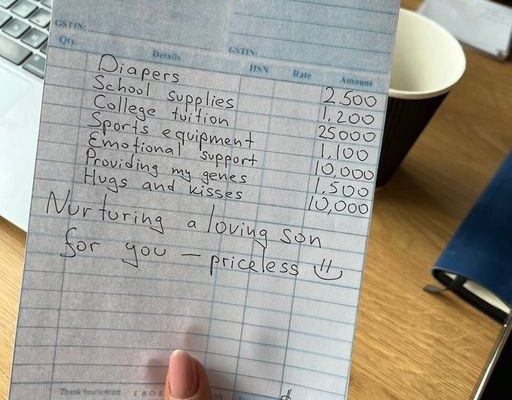 GSTIN:
GSTIN:
Qty. Details HSN Rate Amount
Diapers 2,500
School supplies 1,200
College tuition 25000
Sports equipment 1,100
Emotional support 10,000
Providing my genes 1,500
Hugs and kisses 10,000
Nurturing a loving son
for you – priceless
Thank You!